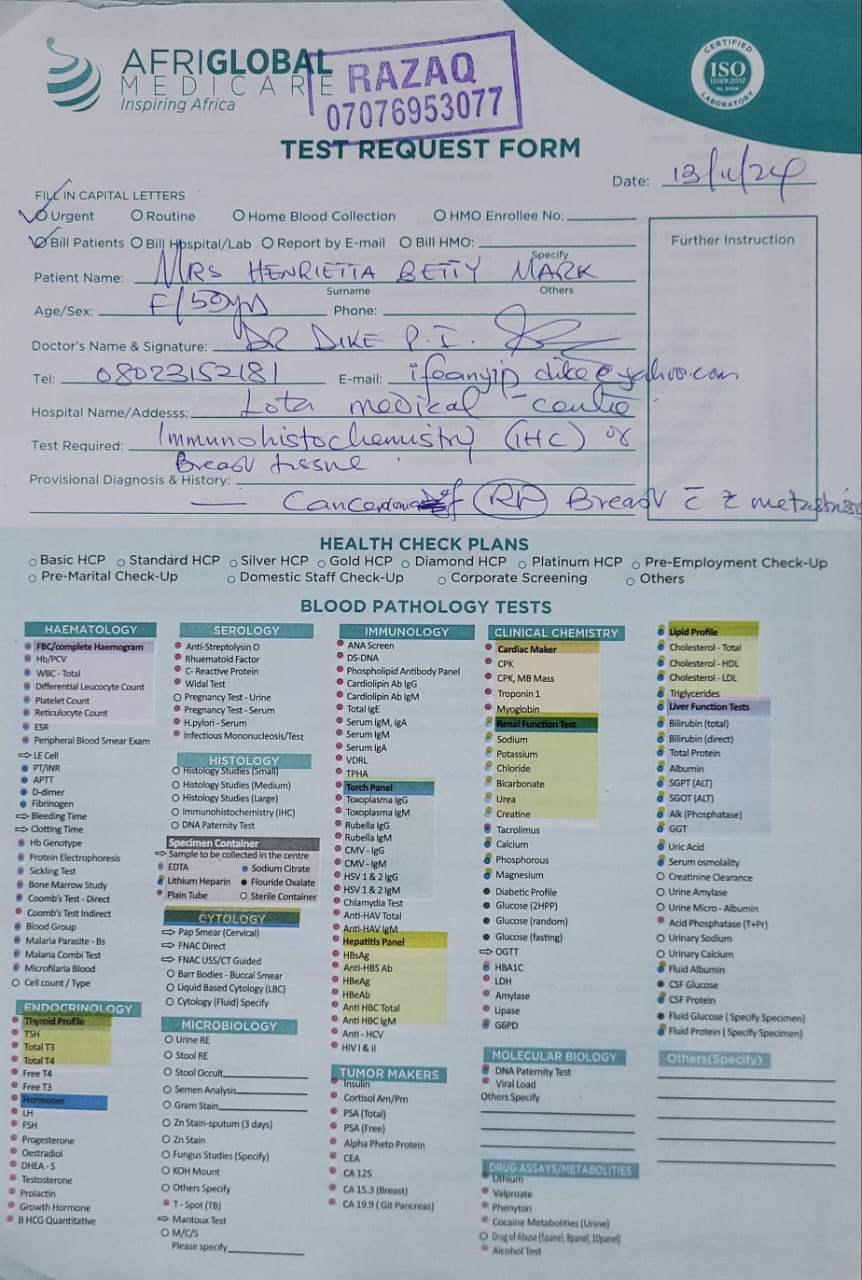 AFRIGLOBAL
MEDICARE
Inspiring Africa
RAZAQ
07076953077
CERTIFIED
ISO
15189:2012
LABORATORY
TEST REQUEST FORM
Date: 13/11/24
FILL IN CAPITAL LETTERS
Urgent Routine Home Blood Collection HMO Enrollee No:
Bill Patients Bill Hospital/Lab Report by E-mail Bill HMO:
Specify
Further Instruction
Patient Name: MRS HENRIETTA BETTY MARK
Surname Others
Age/Sex: F/50yrs Phone:
Doctor's Name & Signature: DR DIKE P.I.
Tel: 08023152181 E-mail: ifeanyip_dike@yahoo.com
Hospital Name/Addesss: Lota medical centre
Test Required: Immunohistochemistry (IHC) of
Breast tissue
Provisional Diagnosis & History:
of (Rt) Breast c̄ metastasis
HEALTH CHECK PLANS
Basic HCP Standard HCP Silver HCP Gold HCP Diamond HCP Platinum HCP Pre-Employment Check-Up
Pre-Marital Check-Up Domestic Staff Check-Up Corporate Screening Others
BLOOD PATHOLOGY TESTS
HAEMATOLOGY
FBC/complete Haemogram
Hb/PCV
WBC - Total
Differential Leucocyte Count
Platelet Count
Reticulocyte Count
ESR
Peripheral Blood Smear Exam
LE Cell
PT/INR
APTT
D-dimer
Fibrinogen
Bleeding Time
Clotting Time
Hb Genotype
Protein Electrophoresis
Sickling Test
Bone Marrow Study
Coomb's Test - Direct
Coomb's Test Indirect
Blood Group
Malaria Parasite - Bs
Malaria Combi Test
Microfilaria Blood
Cell count / Type
ENDOCRINOLOGY
Thyroid Profile
TSH
Total T3
Total T4
Free T4
Free T3
Hormones
LH
FSH
Progesterone
Oestradiol
DHEA - S
Testosterone
Prolactin
Growth Hormone
B HCG Quantitative
SEROLOGY
Anti-Streptolysin O
Rhuematoid Factor
C- Reactive Protein
Widal Test
Pregnancy Test - Urine
Pregnancy Test - Serum
H.pylori - Serum
Infectious Mononucleosis/Test
HISTOLOGY
Histology Studies (Small)
Histology Studies (Medium)
Histology Studies (Large)
Immunohistochemistry (IHC)
DNA Paternity Test
Specimen Container
Sample to be collected in the centre
EDTA Sodium Citrate
Lithium Heparin Flouride Oxalate
Plain Tube Sterile Container
CYTOLOGY
Pap Smear (Cervical)
FNAC Direct
FNAC USS/CT Guided
Barr Bodies - Buccal Smear
Liquid Based Cytology (LBC)
Cytology (Fluid) Specify
MICROBIOLOGY
Urine RE
Stool RE
Stool Occult
Semen Analysis
Gram Stain
Zn Stain-sputum (3 days)
Zn Stain
Fungus Studies (Specify)
KOH Mount
Others Specify
T - Spot (TB)
Mantoux Test
M/C/S
Please specify
IMMUNOLOGY
ANA Screen
DS-DNA
Phospholipid Antibody Panel
Cardiolipin Ab IgG
Cardiolipin Ab IgM
Total IgE
Serum IgM, IgA
Serum IgM
Serum IgA
VDRL
TPHA
Torch Panel
Toxoplasma IgG
Toxoplasma IgM
Rubella IgG
Rubella IgM
CMV - IgG
CMV - IgM
HSV 1 & 2 IgG
HSV 1 & 2 IgM
Chlamydia Test
Anti-HAV Total
Anti-HAV IgM
Hepatitis Panel
HBsAg
Anti-HBS Ab
HBeAg
HBeAb
Anti HBC Total
Anti HBC IgM
Anti - HCV
HIV I & II
TUMOR MAKERS
Insulin
Cortisol Am/Pm
PSA (Total)
PSA (Free)
Alpha Pheto Protein
CEA
CA 125
CA 15.3 (Breast)
CA 19.9 ( Git Pancreas)
CLINICAL CHEMISTRY
Cardiac Maker
CPK
CPK, MB Mass
Troponin 1
Myoglobin
Renal Function Test
Sodium
Potassium
Chloride
Bicarbonate
Urea
Creatine
Tacrolimus
Calcium
Phosphorous
Magnesium
Diabetic Profile
Glucose (2HPP)
Glucose (random)
Glucose (fasting)
OGTT
HBA1C
LDH
Amylase
Lipase
G6PD
MOLECULAR BIOLOGY
DNA Paternity Test
Viral Load
Others Specify
DRUG ASSAYS/METABOLITIES
Lithium
Valproate
Phenyton
Cocaine Metabolities (Urine)
Drug of Abuse (5panel, 8panel, 10panel)
Alcohol Test
Lipid Profile
Cholesterol - Total
Cholesterol - HDL
Cholesterol - LDL
Triglycerides
Liver Function Tests
Bilirubin (total)
Bilirubin (direct)
Total Protein
Albumin
SGPT (ALT)
SGOT (ALT)
Alk (Phosphatase)
GGT
Uric Acid
Serum osmolality
Creatinine Clearance
Urine Amylase
Urine Micro - Albumin
Acid Phosphatase (T+Pr)
Urinary Sodium
Urinary Calcium
Fluid Albumin
CSF Glucose
CSF Protein
Fluid Glucose ( Specify Specimen)
Fluid Protein ( Specify Specimen)
Others(Specify)